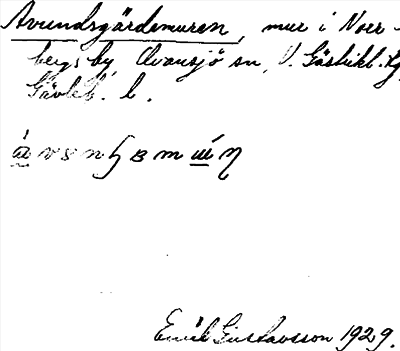 Avundsgärdsmuren, mur i Norr-
bergs by, Ovansjö sn, V. Gästrikl.
Gävleb. l.
Emil Gustavsson 1929.